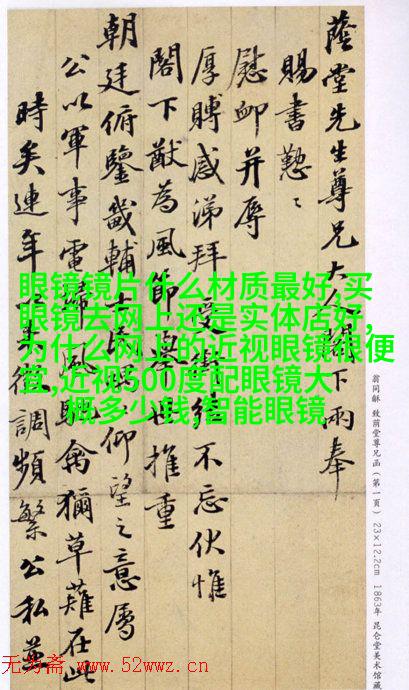 蔭堂先生尊兄大人閣下兩奉
賜書懃〻
慰卹并辱
厚賻感涕拜受銜結不忘伏惟
閣下猷為風節當世推重
朝廷俯鑒畿輔士仰望之意屬
公以軍事電歸風馳禽獮草薙在此
時矣連年以來徵調頻繁公私並
眼镜镜片什么材质最好,买
眼镜去网上还是实体店好,
为什么网上的近视眼镜很便
宜,近视500度配眼镜大
概多少钱,智能眼镜
翁同龢 致荫堂尊兄函（第一页） 23×12.2cm 1863年 昆仑堂美术馆藏
无为斋 www.52wwz.cn